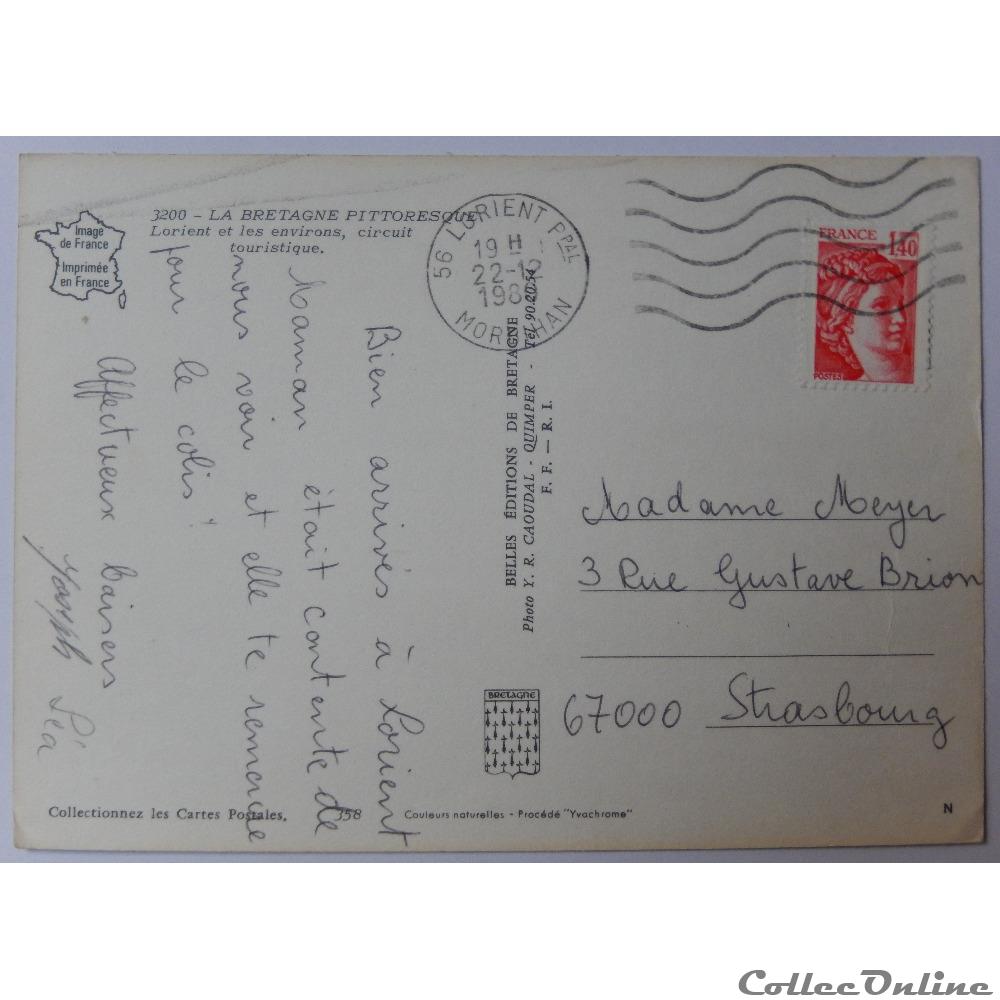 3200 - LA BRETAGNE PITTORESQUE
Lorient et les environs, circuit
touristique.
Image
de France
Imprimée
en France
Bien arrivés à Lorient
Maman était contente de
nous voir et elle te remercie
pour le colis!
Affectueux baisers
Léa
56 LORIENT PPAL
19 H
22-12
MORBIHAN
FRANCE
1,40
POSTES
BELLES ÉDITIONS DE BRETAGNE
Photo Y. R. CAOUDAL - QUIMPER - Tél. 90.20.54
F. F. — R. I.
Madame Meyer
3 Rue Gustave Brion
67000 Strasbourg
BRETAGNE
Collectionnez les Cartes Postales.
358
Couleurs naturelles - Procédé "Yvachrome"
N
CollecOnline